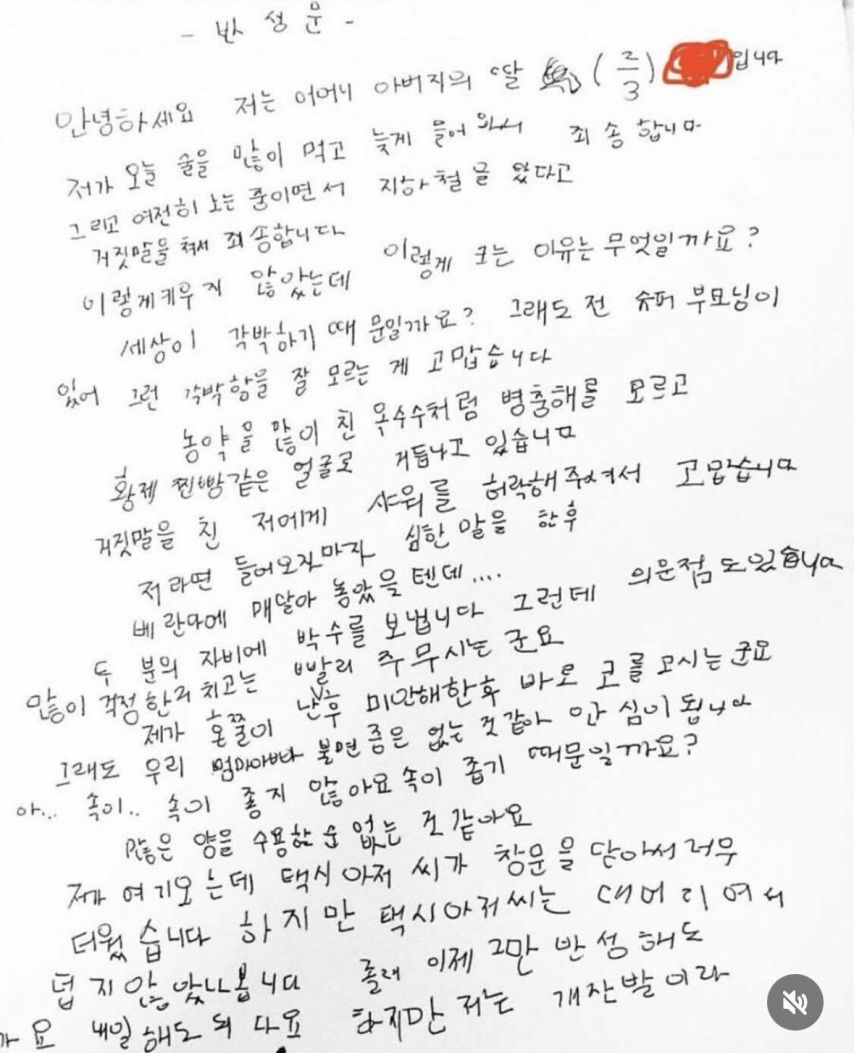 - 반성문 -
안녕하세요 저는 어머니 아버지의 딸 (2/3) 입니다
저가 오늘 술을 많이 먹고 늦게 들어와서 죄송합니다
그리고 여전히 노는 중이면서 지하철을 탔다고
거짓말을 쳐서 죄송합니다
이렇게 키우지 않았는데 이렇게 크는 이유는 무엇일까요?
세상이 각박하기 때문일까요? 그래도 전 슈퍼 부모님이
있어 그런 각박함을 잘 모르는 게 고맙습니다
농약을 많이 친 옥수수처럼 병충해를 모르고
황제 찐빵같은 얼굴로 거듭나고 있습니다
거짓말을 친 저에게 샤워를 허락해주셔서 고맙습니다
저라면 들어오자마자 심한 말을 한 후
베란다에 매달아 놓았을 텐데....
두 분의 자비에 박수를 보냅니다 그런데 의문점도 있습니다
많이 걱정한거 치고는 빨리 주무시는군요
제가 혼쭐이 난 후 미안해한후 바로 코를 고시는군요
그래도 우리 엄마아빠 불면증은 없는 것 같아 안심이 됩니다
아... 속이.. 속이 좋지 않아요 속이 좁기 때문일까요?
많은 양을 수용할 순 없는 것 같아요
저가 여기오는데 택시 아저씨가 창문을 닫아서 너무
더웠습니다 하지만 택시아저씨는 대머리여서
덥지 않았나봅니다 졸려 이제 그만 반성해도
요 내일 해도 되 다요 하지만 저는 개산발이라